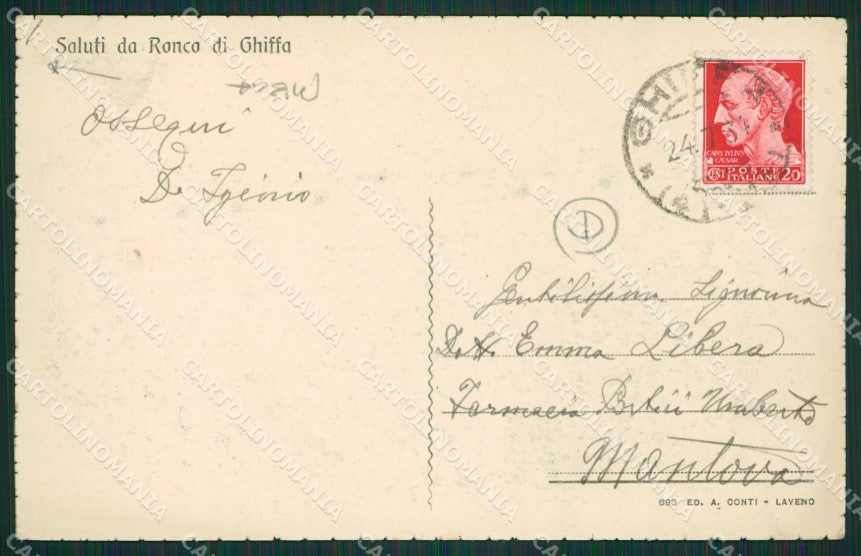 Saluti da Ronco di Ghiffa
Ossequi
De
GHIFFA
24.
CAIVS IVLIVS
CAESAR
POSTE
ITALIANE 20
D
Gentilissima Signorina
Emma Libera
Farmacia Umberto
Mantova
693 ED. A. CONTI - LAVENO
CARTOLINOMANIA